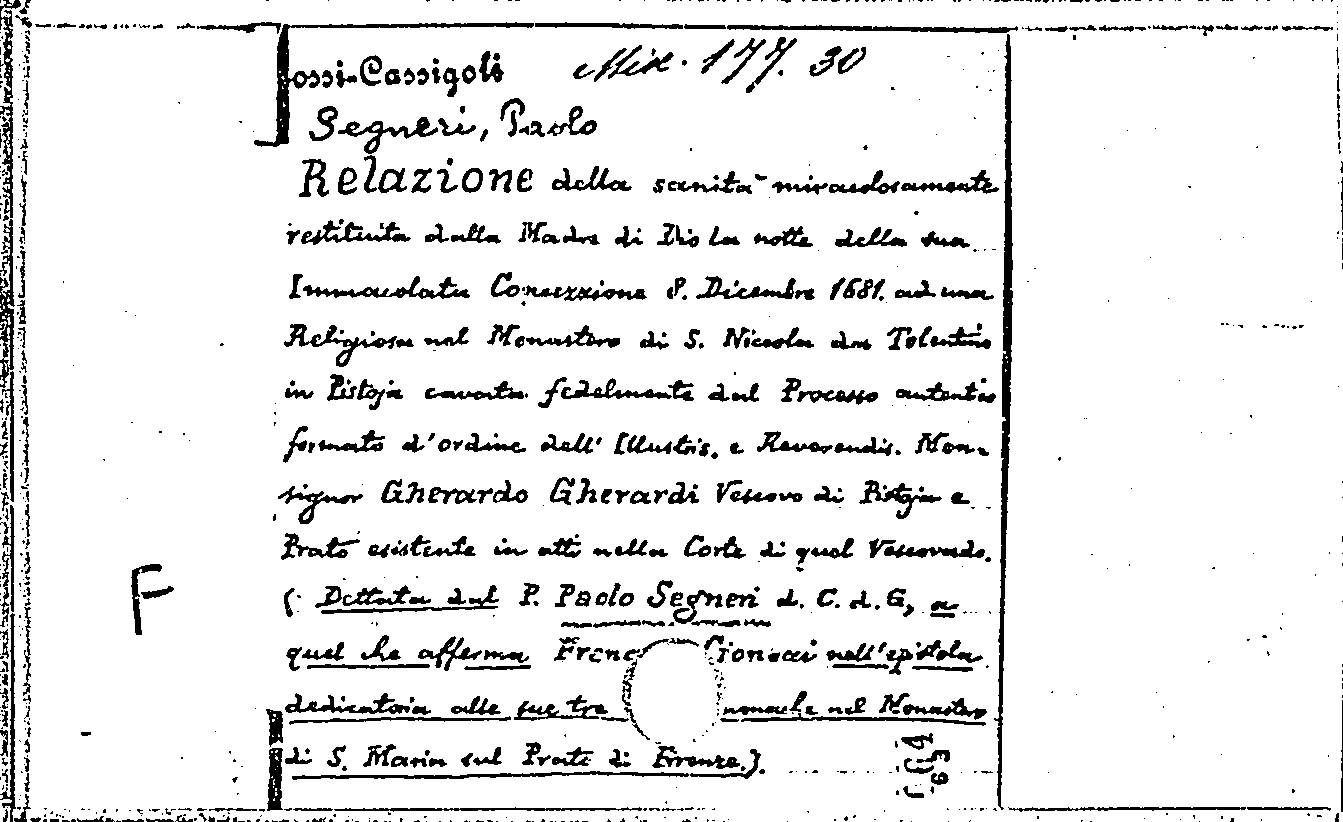 ossi-Cassigoli Misc. 177. 30
Segneri, Paolo
Relazione della sanità miracolosamente
restituita dalla Madre di Dio la notte della sua
Immacolata Concezzione 8. Dicembre 1681. ad una
Religiosa nel Monastero di S. Niccola da Tolentino
in Pistoja cavata fedelmente dal Processo autentico
formato d'ordine dell' Illustris. e Reverendis. Mon-
signor Gherardo Gherardi Vescovo di Pistoja e
Prato esistente in atti nella Corte di quel Vescovado.
( Dettata dal P. Paolo Segneri d. C. d. G, a
quel che afferma Franc Cionacci nell'epistola
dedicatoria alle sue tre monache nel Monastero
di S. Maria sul Prato di Firenze.).
F